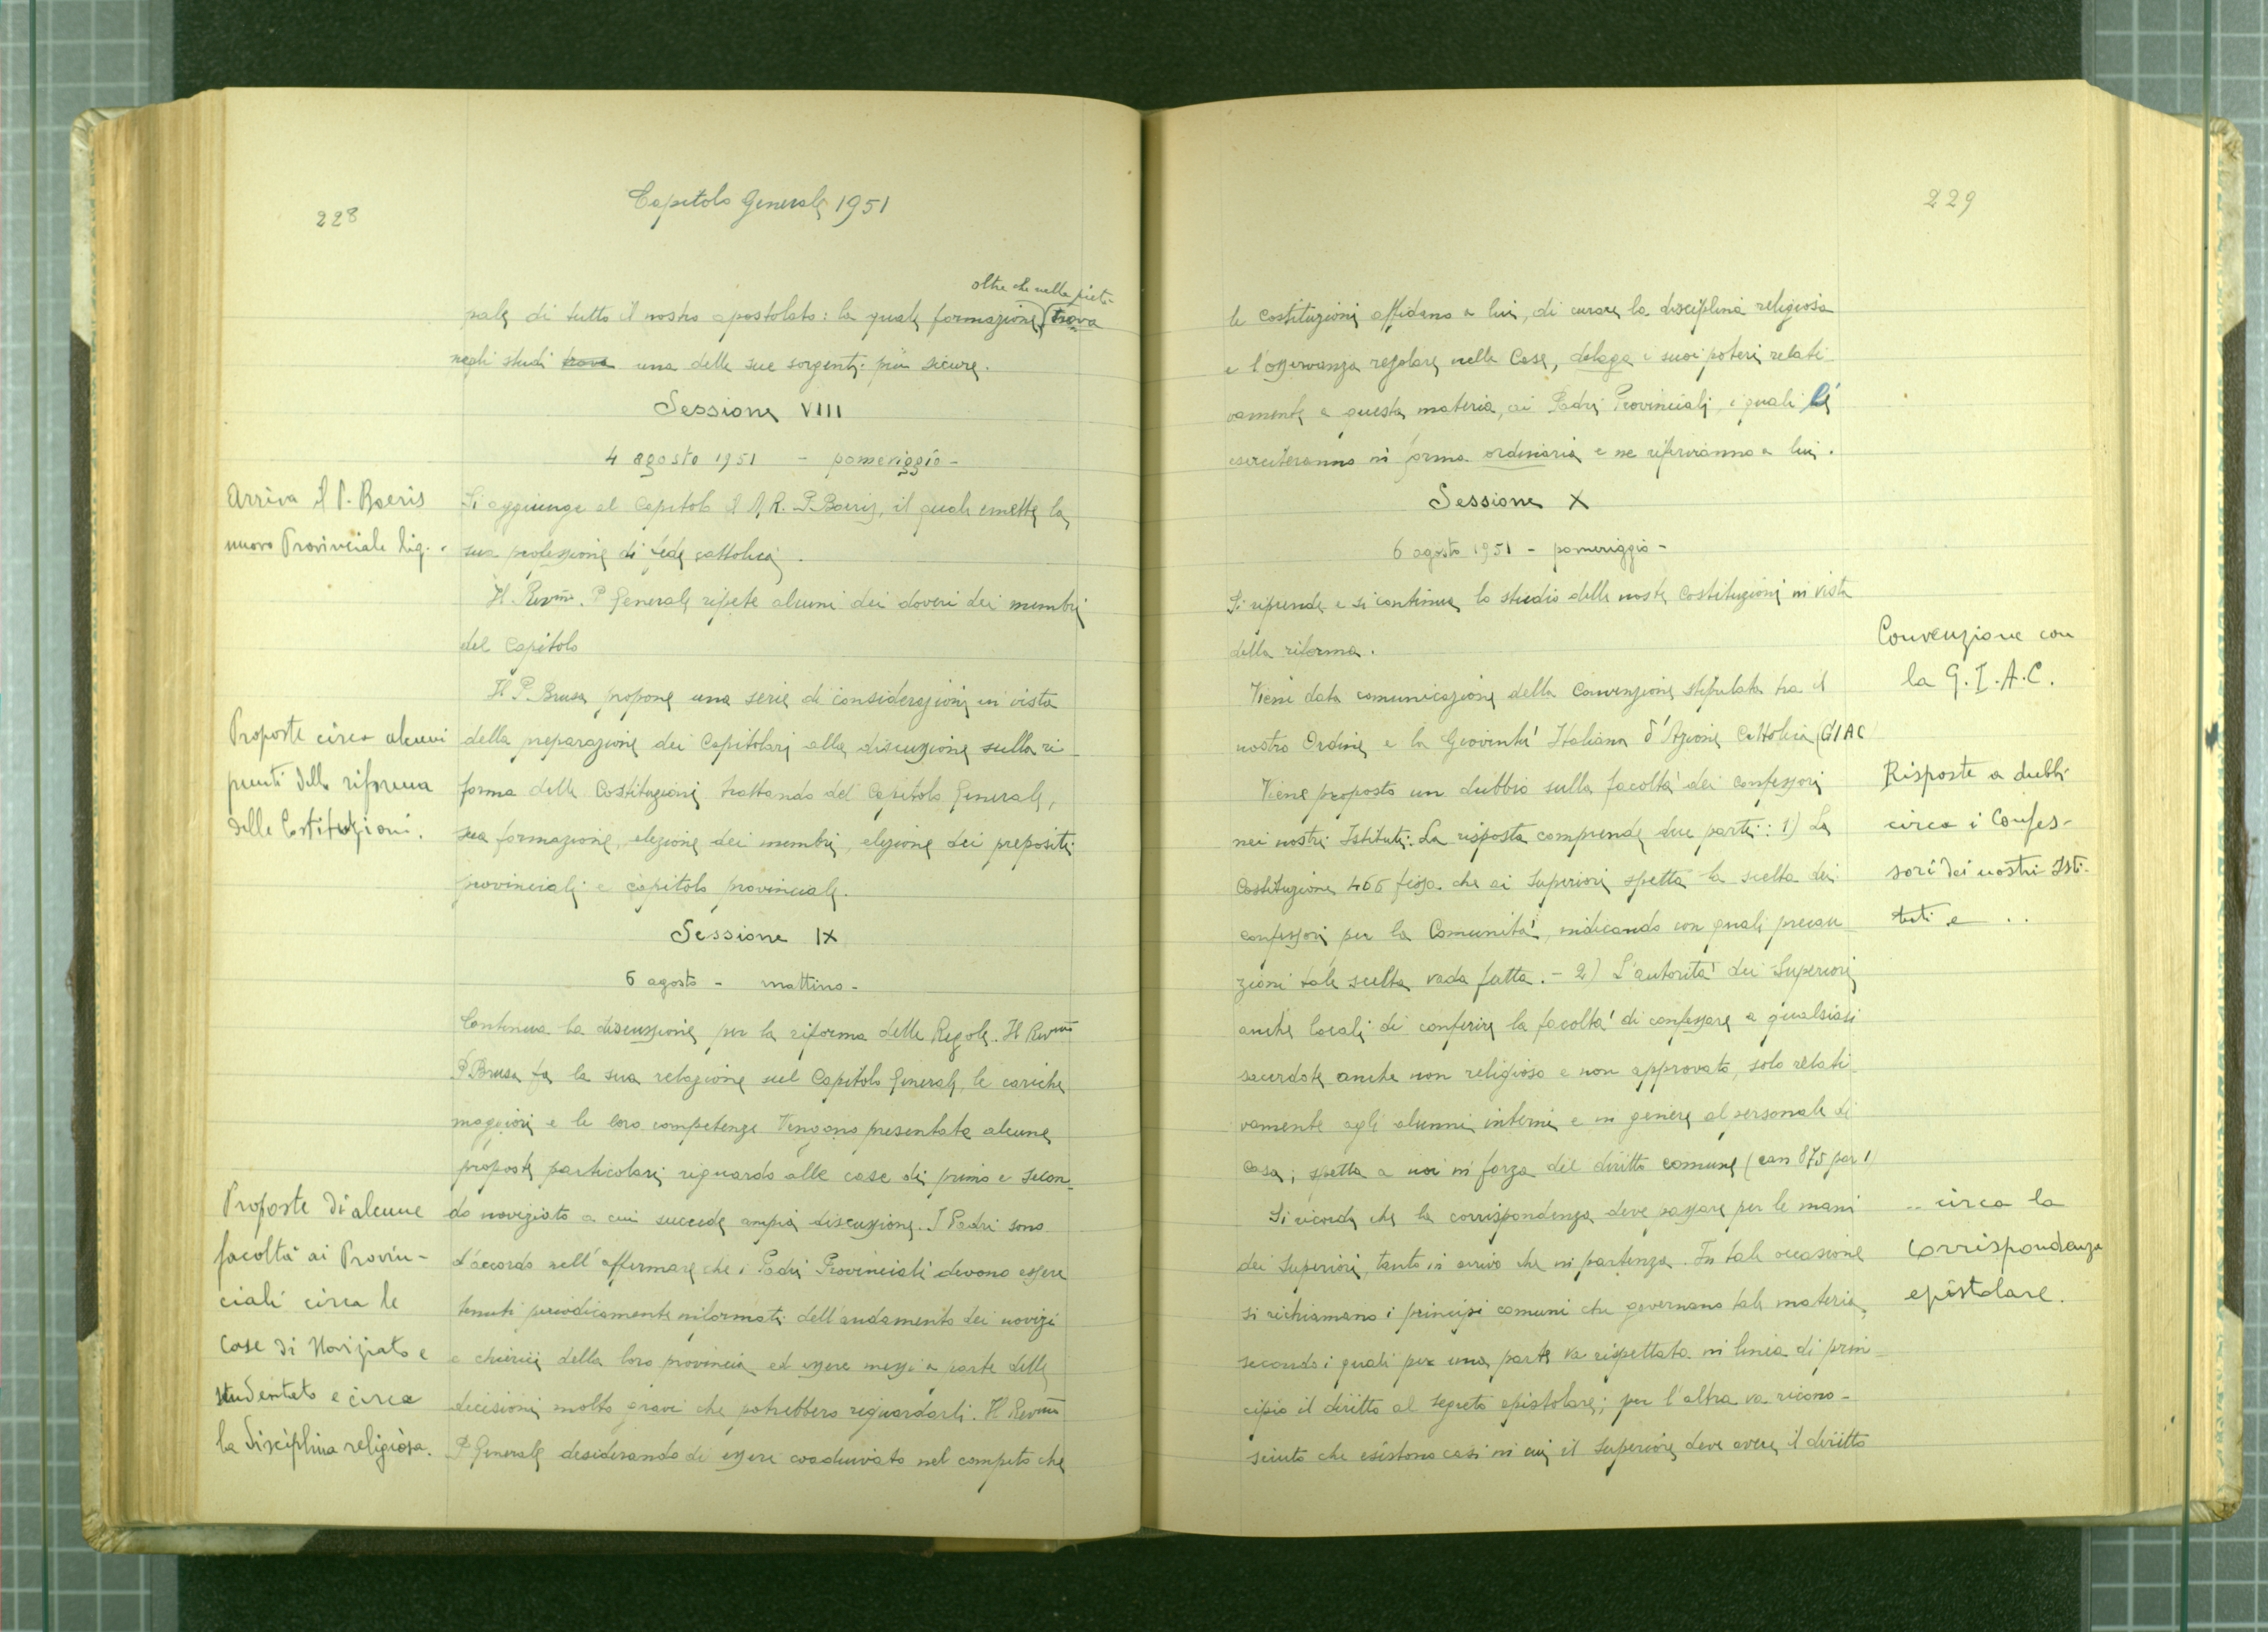 228
Capitolo Generale 1951
oltre che nella pietà
pale di tutto il nostro apostolato: la quale formazione trova
negli studi trova una delle sue sorgenti più sicure.
Sessione VIII
4 agosto 1951 - pomeriggio -
Arriva il P. Boeris
nuovo Provinciale lig.
Si aggiunge al Capitolo il M. R. P. Boeris, il quale emette la
sua professione di fede cattolica.
Il Rev.mo P. Generale ripete alcuni dei doveri dei membri
del Capitolo
Il P. Brusa propone una serie di considerazioni in vista
Proposte circa alcuni
punti della riforma
delle Costituzioni.
della preparazione dei Capitolari alla discussione sulla ri-
forma delle Costituzioni trattando del Capitolo Generale,
sua formazione, elezione dei membri, elezione dei prepositi
provinciali e capitolo provinciale.
Sessione IX
6 agosto - mattino -
Continua la discussione per la riforma delle Regole. Il Rev.mo
P. Brusa fa la sua relazione sul Capitolo Generale, le cariche
maggiori e le loro competenze. Vengono presentate alcune
proposte particolari riguardo alle case di primo e secon-
Proposte di alcune
facoltà ai Provin-
ciali circa le
Case di Noviziato e
studentato e circa
la disciplina religiosa.
do noviziato a cui succede ampia discussione. I Padri sono
d'accordo nell'affermare che i Padri Provinciali devono essere
tenuti periodicamente informati dell'andamento dei novizi
e chierici della loro provincia ed essere messi a parte delle
decisioni molto gravi che potrebbero riguardarli. Il Rev.mo
P. Generale desiderando di essere coadiuvato nel compito che
229
le Costituzioni affidano a lui, di curare la disciplina religiosa
e l'osservanza regolare nelle Case, delega i suoi poteri relati-
vamente a questa materia, ai Padri Provinciali, i quali li
eserciteranno in forma ordinaria e ne riferiranno a lui.
Sessione X
6 agosto 1951 - pomeriggio -
Si riprende e si continua lo studio delle nostre Costituzioni in vista
della riforma.
Convenzione con
la G.I.A.C.
Viene data comunicazione della Convenzione stipulata tra il
nostro Ordine e la Gioventù Italiana d'Azione Cattolica (GIAC
Risposte a dubbi
circa i Confes-
sori dei nostri Isti-
tuti e ..
Viene proposto un dubbio sulla facoltà dei confessori
nei nostri Istituti: La risposta comprende due parti: 1) La
Costituzione 466 fissa che ai Superiori spetta la scelta dei
confessori per la Comunità, indicando con quali precau-
zioni tale scelta vada fatta. - 2) L'autorità dei Superiori
anche locali di conferire la facoltà di confessare a qualsiasi
sacerdote anche non religioso e non approvato, solo relati-
vamente agli alunni interni e in genere al personale di
casa, spetta a noi in forza del diritto comune (can 875 par 1)
.. circa la
corrispondenza
epistolare.
Si ricorda che la corrispondenza deve passare per le mani
dei Superiori, tanto in arrivo che in partenza. In tale occasione
si richiamano i principi comuni che governano tale materia,
secondo i quali per una parte va rispettato in linea di prin-
cipio il diritto al segreto epistolare; per l'altra va ricono-
sciuto che esistono casi in cui il Superiore deve avere il diritto